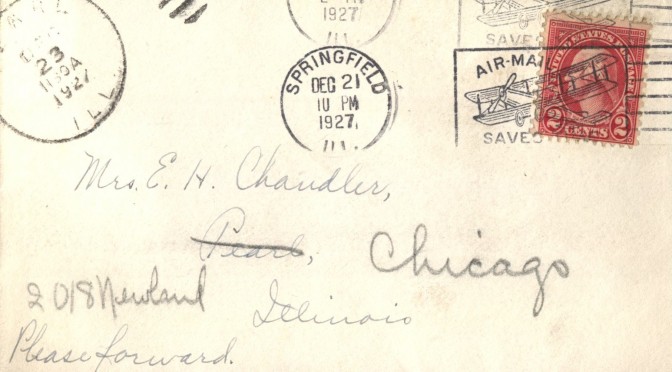 1927
ILL.
SAVES
DEC
23
1927
ILL
SPRINGFIELD
DEC 21
10 PM
1927
ILL.
AIR-MAIL
SAVES
UNITED STATES POSTAGE
2 CENTS 2
Mrs. E. H. Chandler,
Pearl,
Chicago
2018 Newland
Illinois
Please forward.